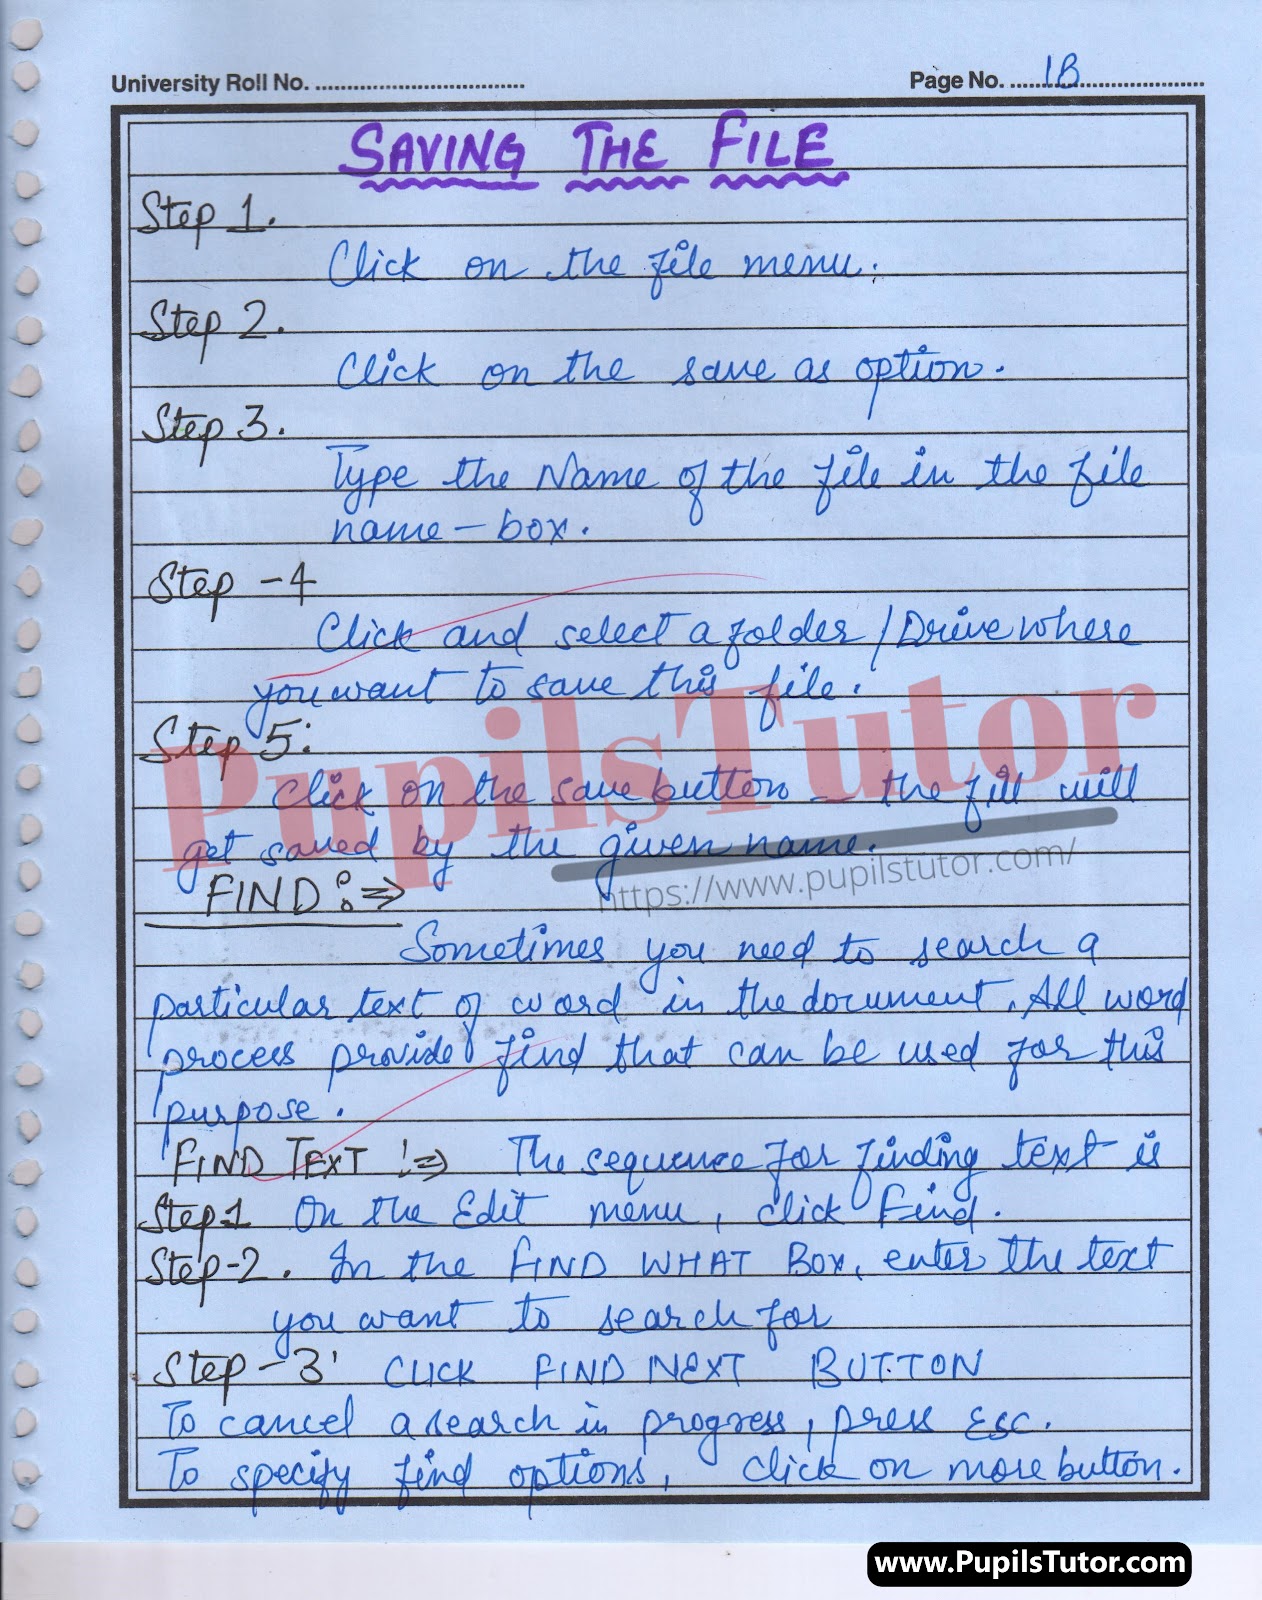 University Roll No. ................................
Page No. ....1B....................
SAVING THE FILE
Step 1.
Click on the file menu.
Step 2.
Click on the save as option.
Step 3.
Type the Name of the file in the file
name - box.
Step -4
Click and select a folder / Drive where
you want to save this file.
PupilsTutor
Step 5:
Click on the save button - the fill will
get saved by the given name.
https://www.pupilstutor.com/
FIND :⇒
Sometimes you need to search a
particular text of word in the document. All word
process provide find that can be used for this
purpose.
FIND TEXT :⇒ The sequence for finding text is
Step-1 On the Edit menu, click Find.
Step-2. In the FIND WHAT Box, enter the text
you want to search for
Step - 3' CLICK FIND NEXT BUTTON
To cancel a search in progress, press Esc.
To specify find options, click on more button.
www.PupilsTutor.com